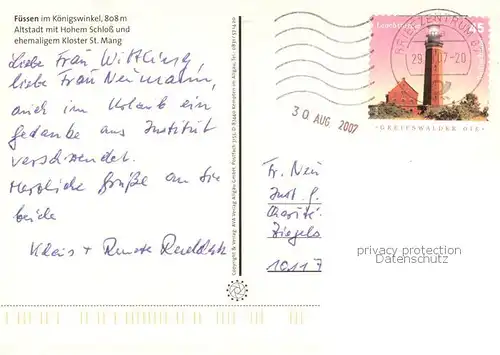 Füssen im Königswinkel, 808 m
Altstadt mit Hohem Schloß und
ehemaligem Kloster St. Mang
Liebe Frau Wittling,
liebe Frau Neumann,
auch im Urlaub ein
Gedanke ans Institut
verschwendet.
Herzliche Grüße an Sie
beide
Klaus + Renate
Copyright & Verlag: AVA Verlag Allgäu GmbH, Postfach
Leuchttürme
45
BRIEFZENTRUM 87
29. 07-20
GREIFSWALDER OIE
30 AUG 2007
Fr. Neu
Inst. f.
Charité
Ziegels
10117
privacy protection
Datenschutz